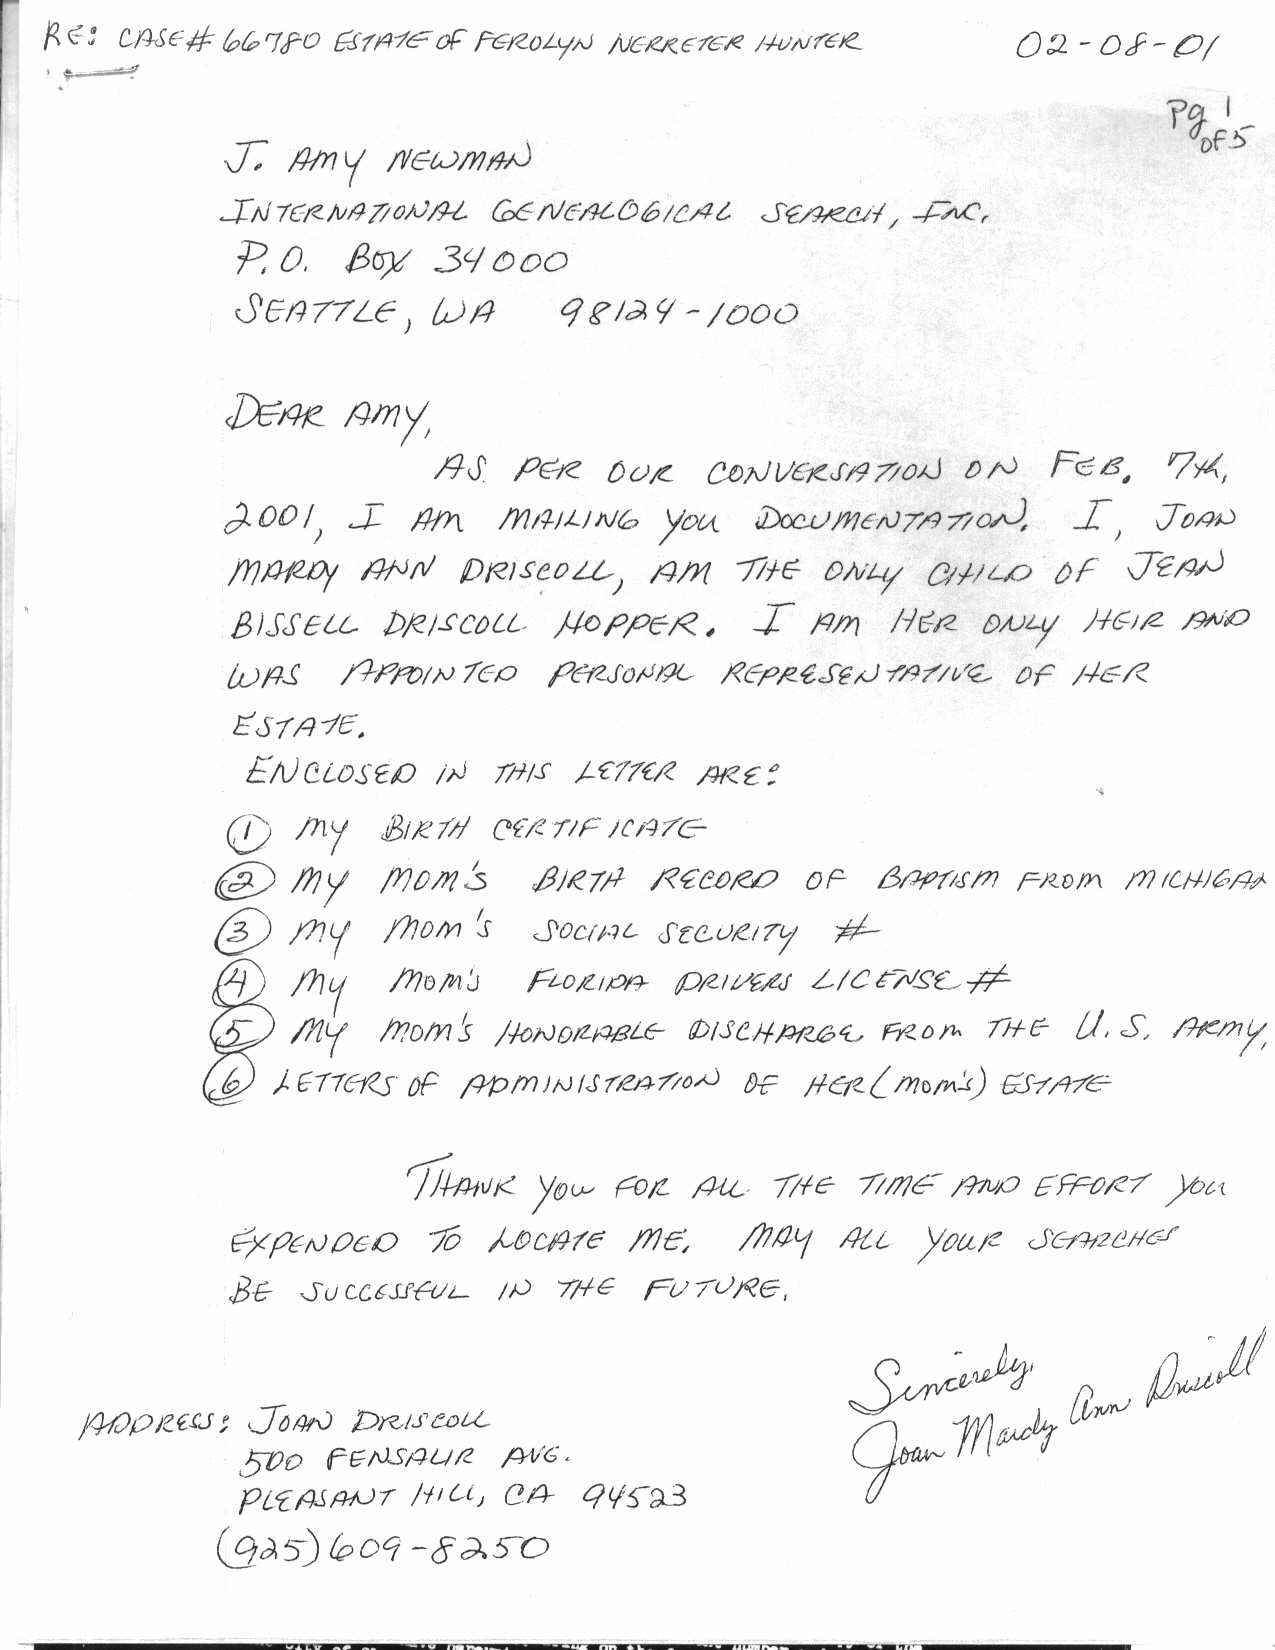 RE: CASE# 66780 ESTATE OF FEROLYN NERRETER HUNTER 02-08-01
Pg 1
OF 5
J. AMY NEWMAN
INTERNATIONAL GENEALOGICAL SEARCH, INC.
P.O. BOX 34000
SEATTLE, WA 98124-1000
DEAR AMY,
AS PER OUR CONVERSATION ON FEB. 7th,
2001, I AM MAILING YOU DOCUMENTATION. I, JOAN
MARDY ANN DRISCOLL, AM THE ONLY CHILD OF JEAN
BISSELL DRISCOLL HOPPER. I AM HER ONLY HEIR AND
WAS APPOINTED PERSONAL REPRESENTATIVE OF HER
ESTATE.
ENCLOSED IN THIS LETTER ARE:
1 MY BIRTH CERTIFICATE
2 MY MOM'S BIRTH RECORD OF BAPTISM FROM MICHIGAN
3 MY MOM'S SOCIAL SECURITY #
4 MY MOM'S FLORIDA DRIVERS LICENSE #
5 MY MOM'S HONORABLE DISCHARGE FROM THE U.S. ARMY,
6 LETTERS OF ADMINISTRATION OF HER (MOM'S) ESTATE
THANK YOU FOR ALL THE TIME AND EFFORT YOU
EXPENDED TO LOCATE ME. MAY ALL YOUR SEARCHES
BE SUCCESSFUL IN THE FUTURE.
Sincerely,
Joan Mardy Ann Driscoll
ADDRESS: JOAN DRISCOLL
500 FENSALIR AVE.
PLEASANT HILL, CA 94523
(925) 609-8250